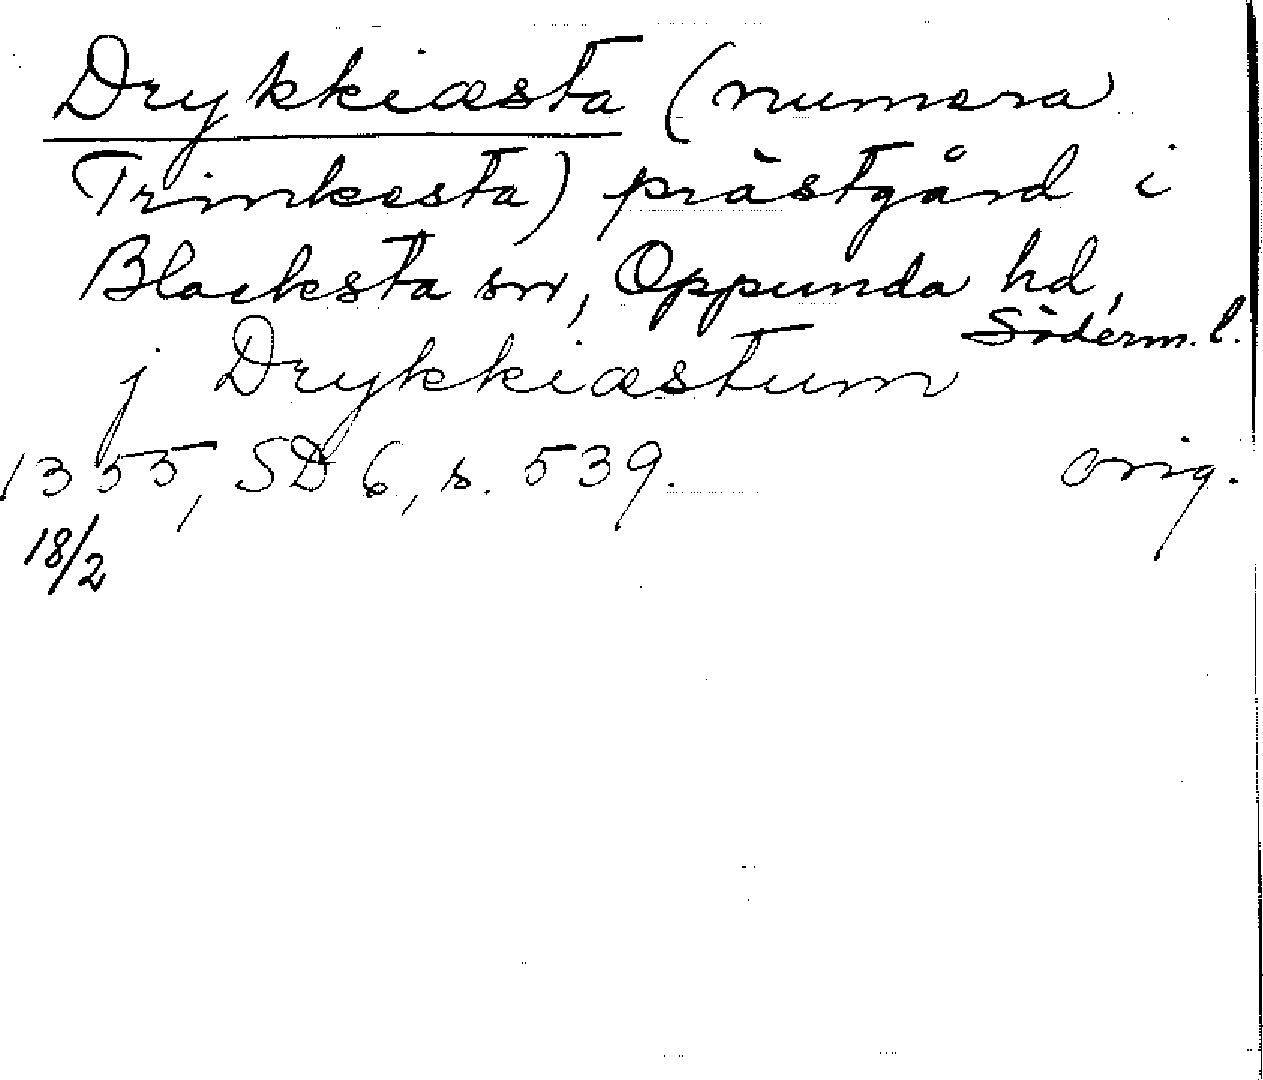 Drykkiæsta (numera
Trinkesta) prästgård i
Blacksta sn, Oppunda hd,
Söderm. l.
j Drykkiæstum
1355, SD 6, s. 539. orig.
18/2